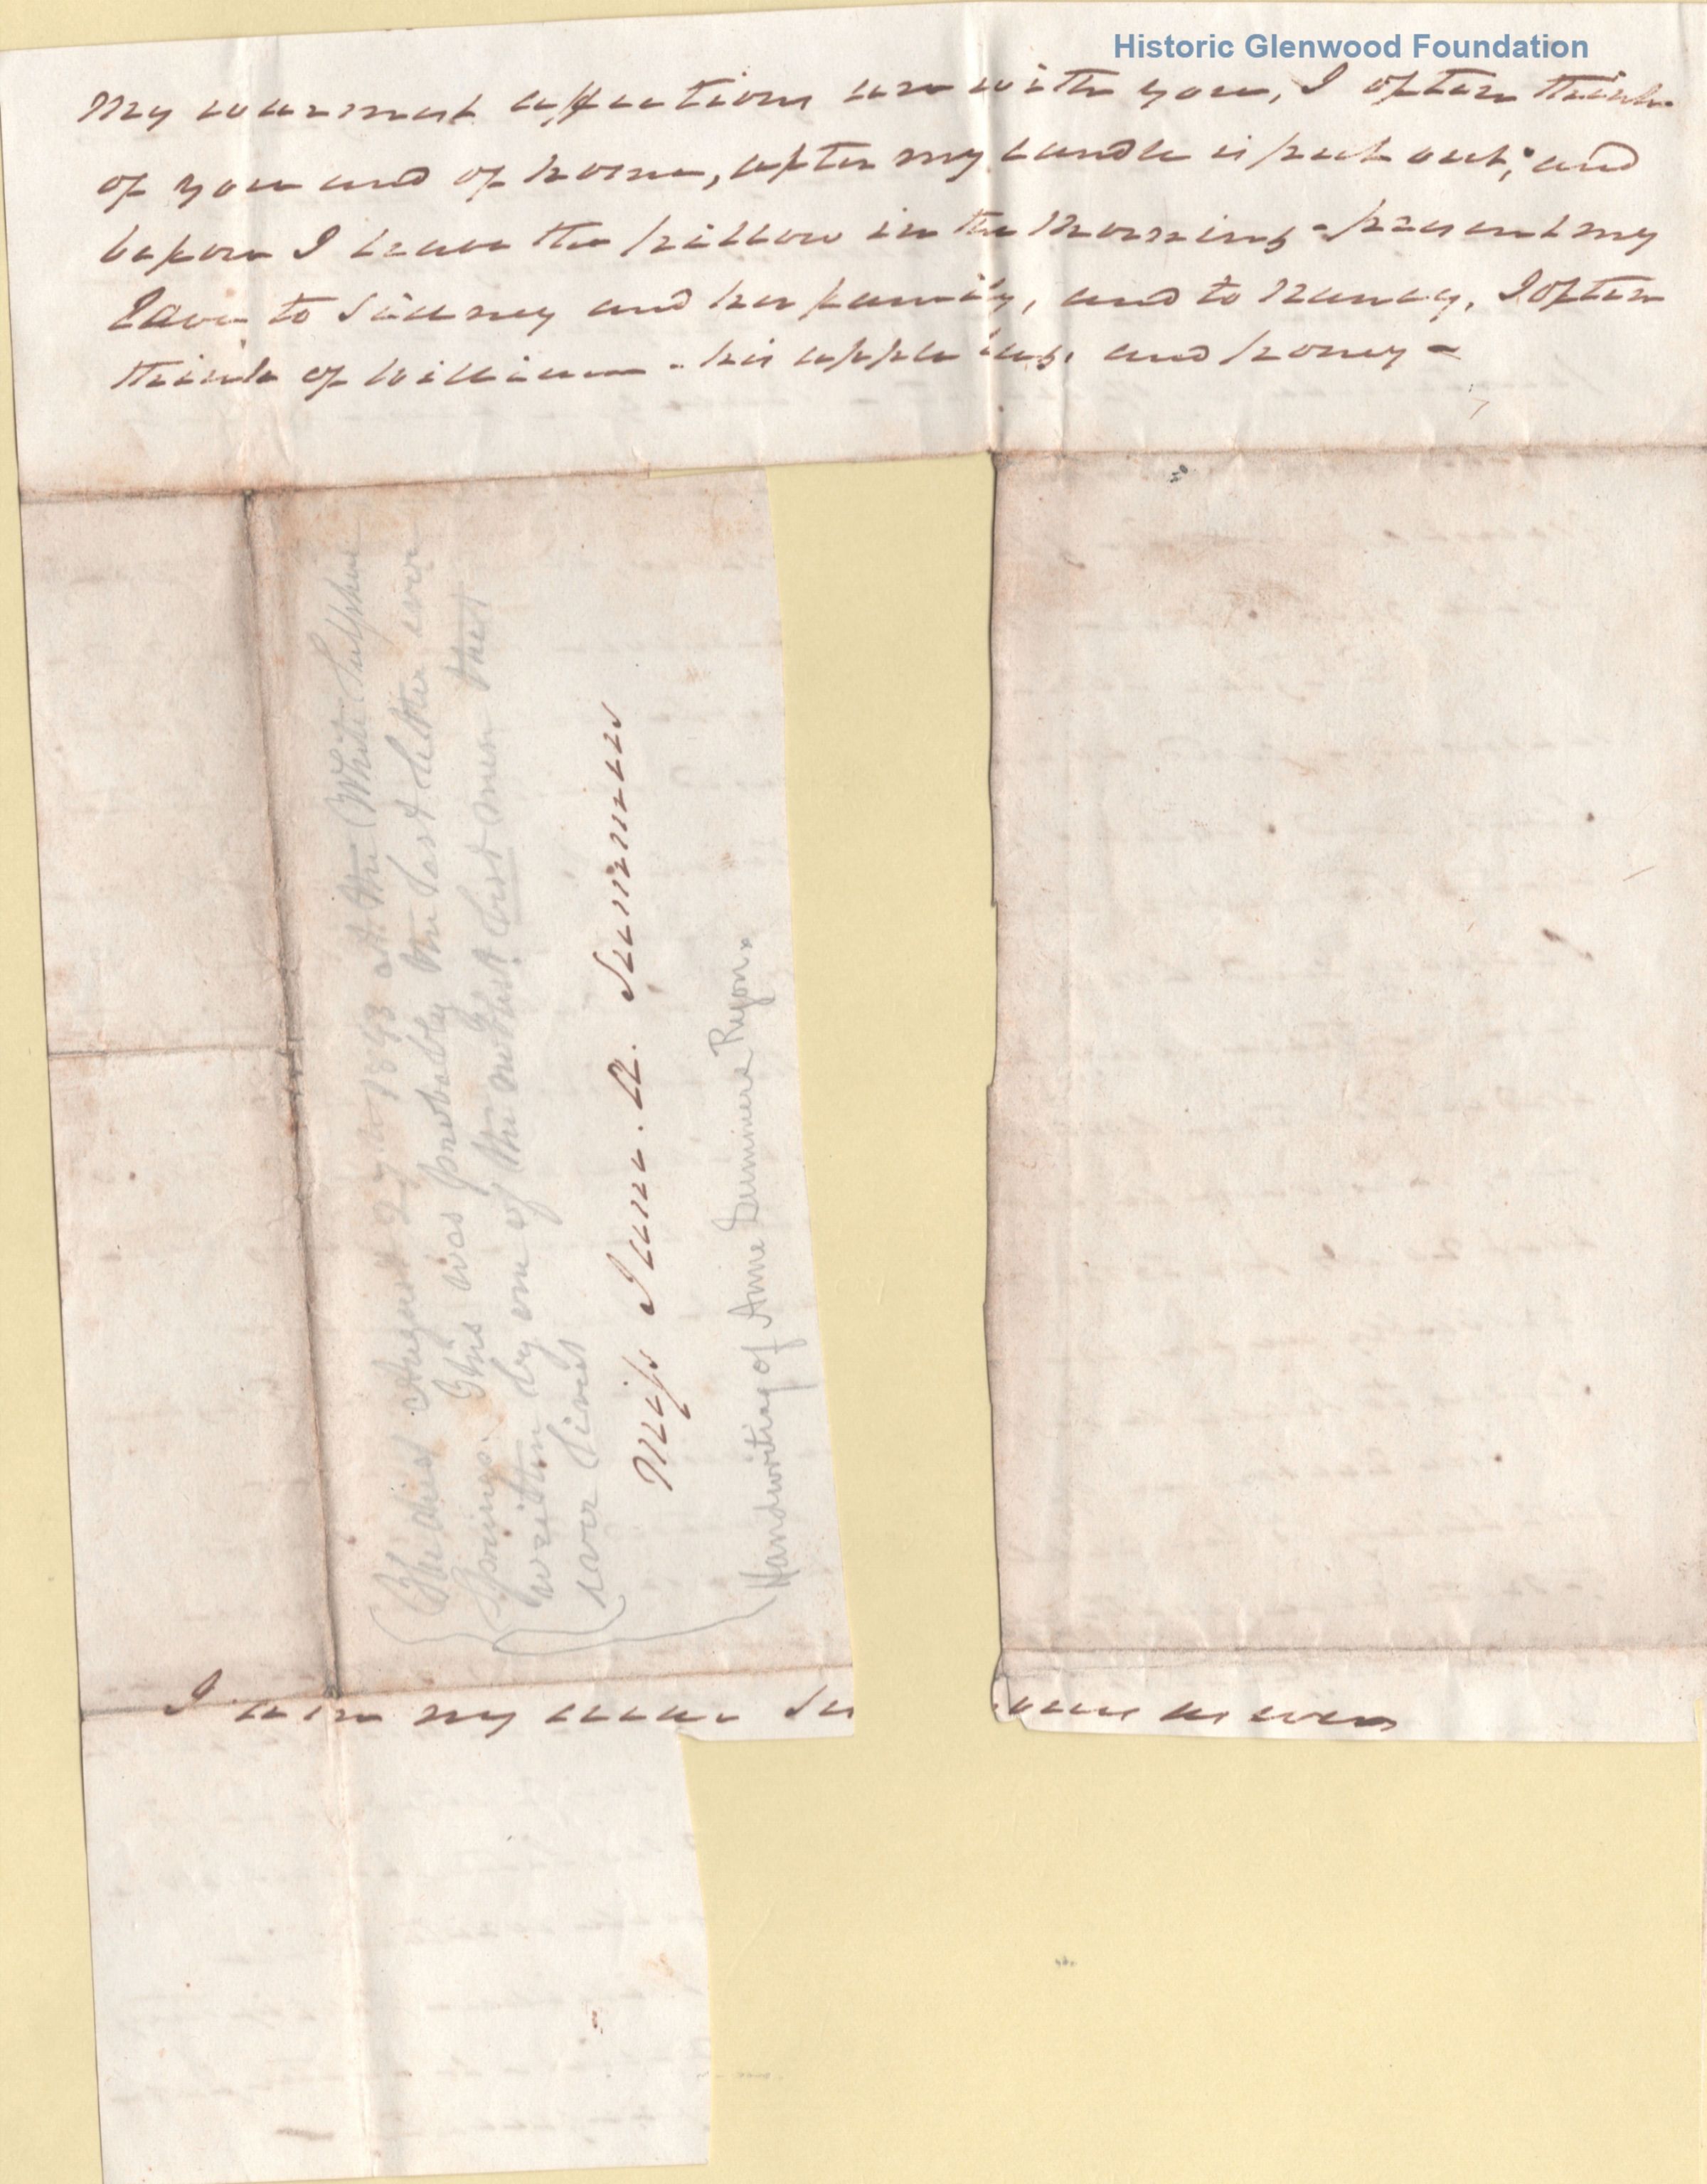 Historic Glenwood Foundation
My warmest affections are with you, I often think
of you and of home, after my candle is put out, and
before I leave the pillow in the morning - present my
Love to Sidney and her family, and to Nancy. I often
think of William - his apple and honey -
{He died August 27th 1843 at the White Sulphur
Springs. This was probably the last letter ever
written by one of the noblest best men that
ever lived
Miss Jane. A. Summers
Handwriting of Anne Summers Ryon.
I am my dear
yours as ever